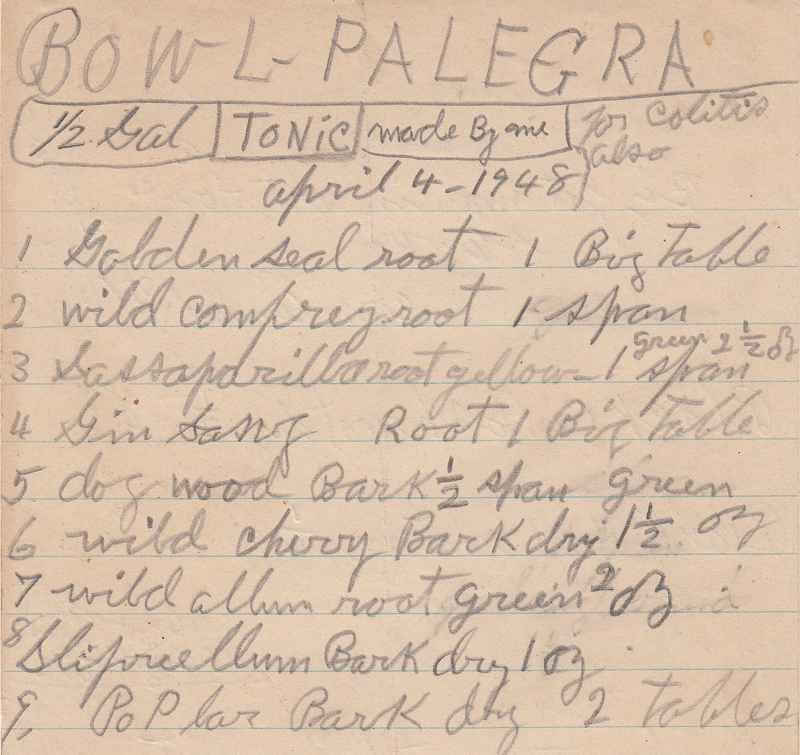 BOW-L-PALEGRA
1/2 Gal TONIC made By me for Colitis also
april 4-1948
1 Golden seal root 1 Big Table
2 wild comfrey root 1 span
3 Sassaparilla root yellow - 1 span Green 2 1/2 oz
4 Gin Sang Root 1 Big Table
5 dog wood Bark 1/2 span green
6 wild cherry Bark dry 1 1/2 oz
7 wild allum root green 2 oz
8 Sliprellum Bark dry 1 oz
9, PoPlar Bark dry 2 tables